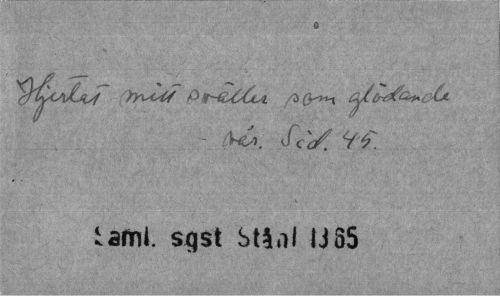 Hjertat mitt sväller som glödande
vår. Sid. 45.
Saml. sgst Ståhl 1865